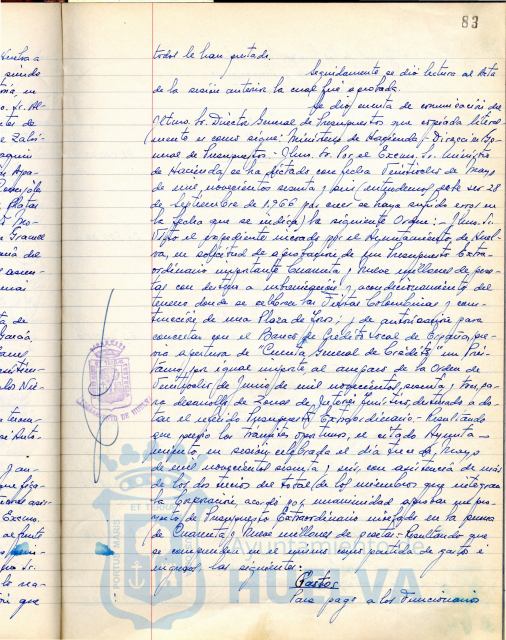 83
todos le han prestado.
Seguidamente se dió lectura al Acta
de la sesión anterior la cual fué aprobada.
Se dió cuenta de comunicación del
Iltmo. Sr. Director General de Presupuestos que copiada literal-
mente es como sigue: Ministerio de Hacienda, Dirección Ge-
neral de Presupuestos.- Ilmo. Sr. Por el Excmo. Sr. Ministro
de Hacienda, se ha dictado con fecha Veintiocho de Mayo
de mil novecientos sesenta y seis (entendemos debe ser 28
de Septiembre de 1.966 por creer se haya sufrido error en
la fecha que se indica) la siguiente Orden:- Ilmo. Sr.
Visto el expediente incoado por el Ayuntamiento de Huel-
va, en solicitud de aprobación de un Presupuesto Extra-
ordinario importante Cuarenta y Nueve millones de pese-
tas con destino a urbanización y acondicionamiento del
terreno donde se celebran las Fiestas Colombinas y cons-
trucción de una Plaza de Toros; y de autorización para
concertar con el Banco de Crédito Local de España, pre-
via apertura de "Cuenta General de Crédito" un Prés-
tamo por igual importe al amparo de la Orden de
Veintiocho de Junio de mil novecientos sesenta y tres para
desarrollo de Zonas de Interés Turístico destinado a do-
tar el referido Presupuesto Extraordinario.- Resultando
que previo los trámites oportunos, el citado Ayunta-
miento, en sesión celebrada el día trece de Mayo
de mil novecientos sesenta y seis, con asistencia de más
de los dos tercios del total de los miembros que integran
la Corporación, acordó por unanimidad aprobar un pro-
yecto de Presupuesto Extraordinario nivelado en la suma
de Cuarenta y Nueve millones de pesetas.- Resultando que
se comprenden en el mismo como partidas de gastos e
ingresos las siguientes:
Gastos
Para pago a los Funcionarios
ET TERRÆ
PORTUS MARIS
Ayuntamiento de
HUELVA